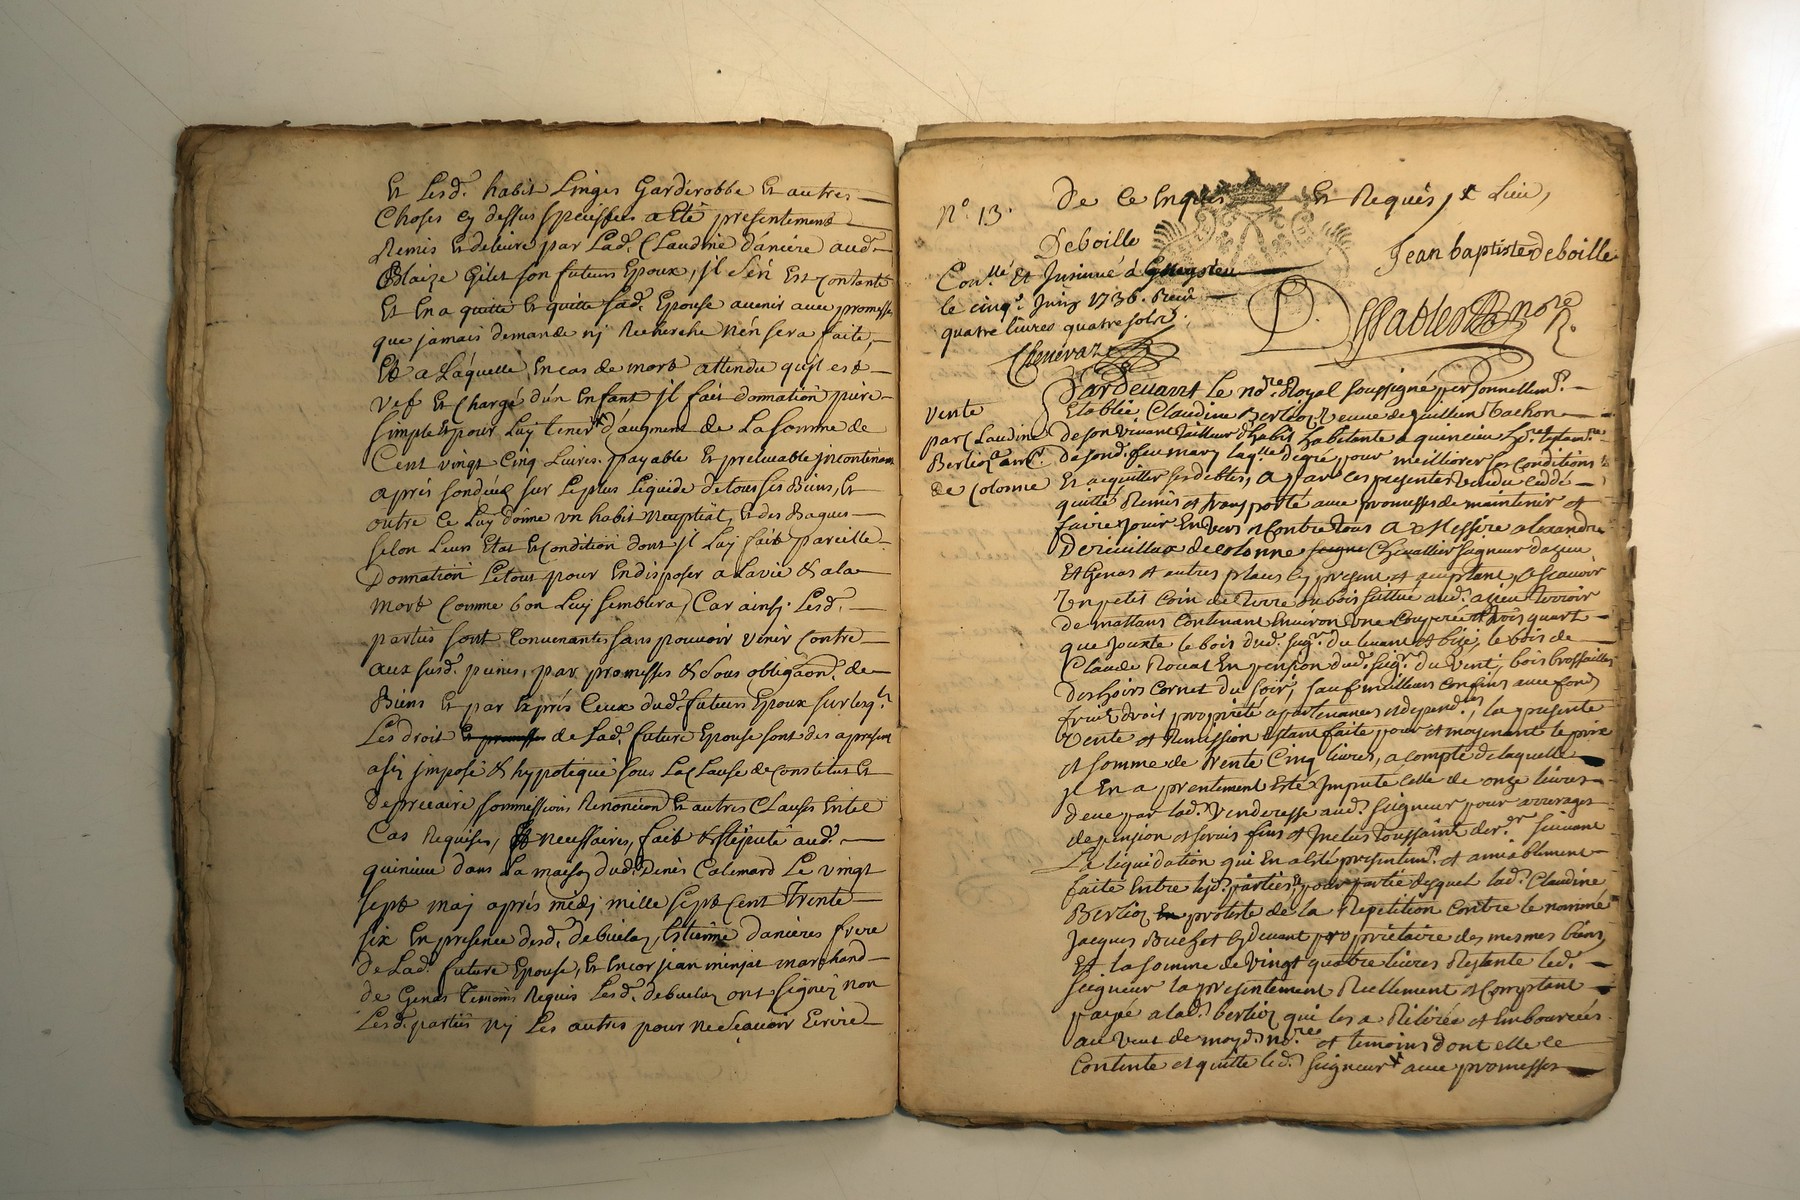 Et Lesd. habit Linges Garderobbe Et autres
Choses Cy dessus speciffiees a Eté presentement
Remis Et delivré par Lad. Claudine daniére aud.
Blaize Gilet son futeur Epoux, jl s'en Est contanté
Et En a quitté Et quitte Sad. Epouse avenir avec promesse
que jamais demande nj Recherche n'en sera faite,
Et a Láquelle, En cas de mort attendu qu'jl est
vef Et Chargé d'un Enfant jl fait donnation pure
simple Et pour Luy tenir d'augment de La somme de
Cent vingt Cinq Livres payable Et prelevable jncontinant
aprés son décés sur Le plus Liquide de tous ses Biens, Et
outre Ce Luy donne vn habit Neuptial, Et des Bagues
selon Leur Etat Et Condition dont jl Luy fait pareille
Donnation Le tout pour En disposer a La vie & a la
mort Comme bon Luy semblera, Car ainsj Lesd.
partiés sont Convenantes sans pouvoir venir Contre
aux susd. peines, par promesses & sous obligaon. de
Biens Et par Exprés Ceux dud. futeur Epoux sur Lesq.ls
Les droit de Lad. future Epouse sont des apresent
assis jmposé & hypotequé sous La Clause de Constitut Et
de precaire sommissions Renoncion Et autres Clauses En tel
Cas Requises, Et necessaires, fait & stipulé aud.
quincieu dans La maison dud. Denis Calemard Le vingt
sept maj aprés midj mille sept Cent Trente
six En presence desd. debuelaz, Estienne daniéres frere
de Lad. future Epouse, Et Encor jean minjat marchand
de Genas Temoins Requis Lesd. debuelaz ont signéz non
Lesd. partiés Nj Les autres pour ne sçauoir Ecrire
De Ce Enquis Et Requis, Lieu,
N.o 13.
Deboille
Jean baptiste Deboille
Con.llé Et Jnsinué á
le cinq.e Juin 1736. Receu
quatre livres quatre sols
Chenévaz
Pardevant Le no.re Royal soussigné personnellem.t
vente
par Claudine
Berlioz a M.r
de Colonne
Establie Claudine Berlioz Veuve de Guillem Vachon
de son vivant tailleur d'habit habitante a quincieu
de sond. feu mary laq.lle de gré pour meilliorer ses Conditions
Et acquitter ses debtes, a par ces presentes Vendu Ceddé
quitté Remis et transporté avec promesses de maintenir et
faire Jouir Envers et Contre tous A Messire alexandre
de Colonne Chevallier Seigneur
Et Genas et autres places Cy present et acceptant, a scavoir
Un petit coin de terre ou bois scittué aud. terroir
de mattans Contenant Environ Une Couperée trois quart
que Jouxte le bois dud. seig.r du levant et bize, le bois de
Claude Rouat En pension dud. seig.r du Vent, bois brossailles
des hoirs Cornet du soir, sauf meilleurs confins avec fond
fruit droit proprieté apartenances et depend.es, la presente
Vente et Remission estant faite pour et moyenant le prix
et somme de trente Cinq livres, a compte de laquelle
jl En a presentement Esté Imputé Celle de onze livres
deue par lad. Venderesse aud. Seigneur pour arrerages
de pension et servis fins et Jnclus toussaint der.er suivant
La liquidation qui En a Eté presentem.t et amiablement
faite Entre lesd. parties, pour partie desquel lad. Claudine
Berlioz proteste de la Repetition Contre le nommé
Jacques Buchet Cy devant propriétaire des mesmes biens
Et la somme de vingt quatre livres Restante led.
Seigneur la presentement Reellement et Comptant
payé a lad. berlioz qui les a Retirée et Emboursées
au Veut de moyd. no.re et temoins dont elle se
Contente et quitte led. Seigneur avec promesses